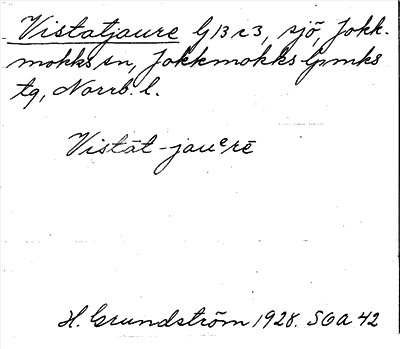 Vistatjaure G13c3, sjö, Jokk-
mokks sn, Jokkmokks lpmks
tg, Norrb. l.
Vīstāt-jauᵉrē
H. Grundström 1928. SOA 42